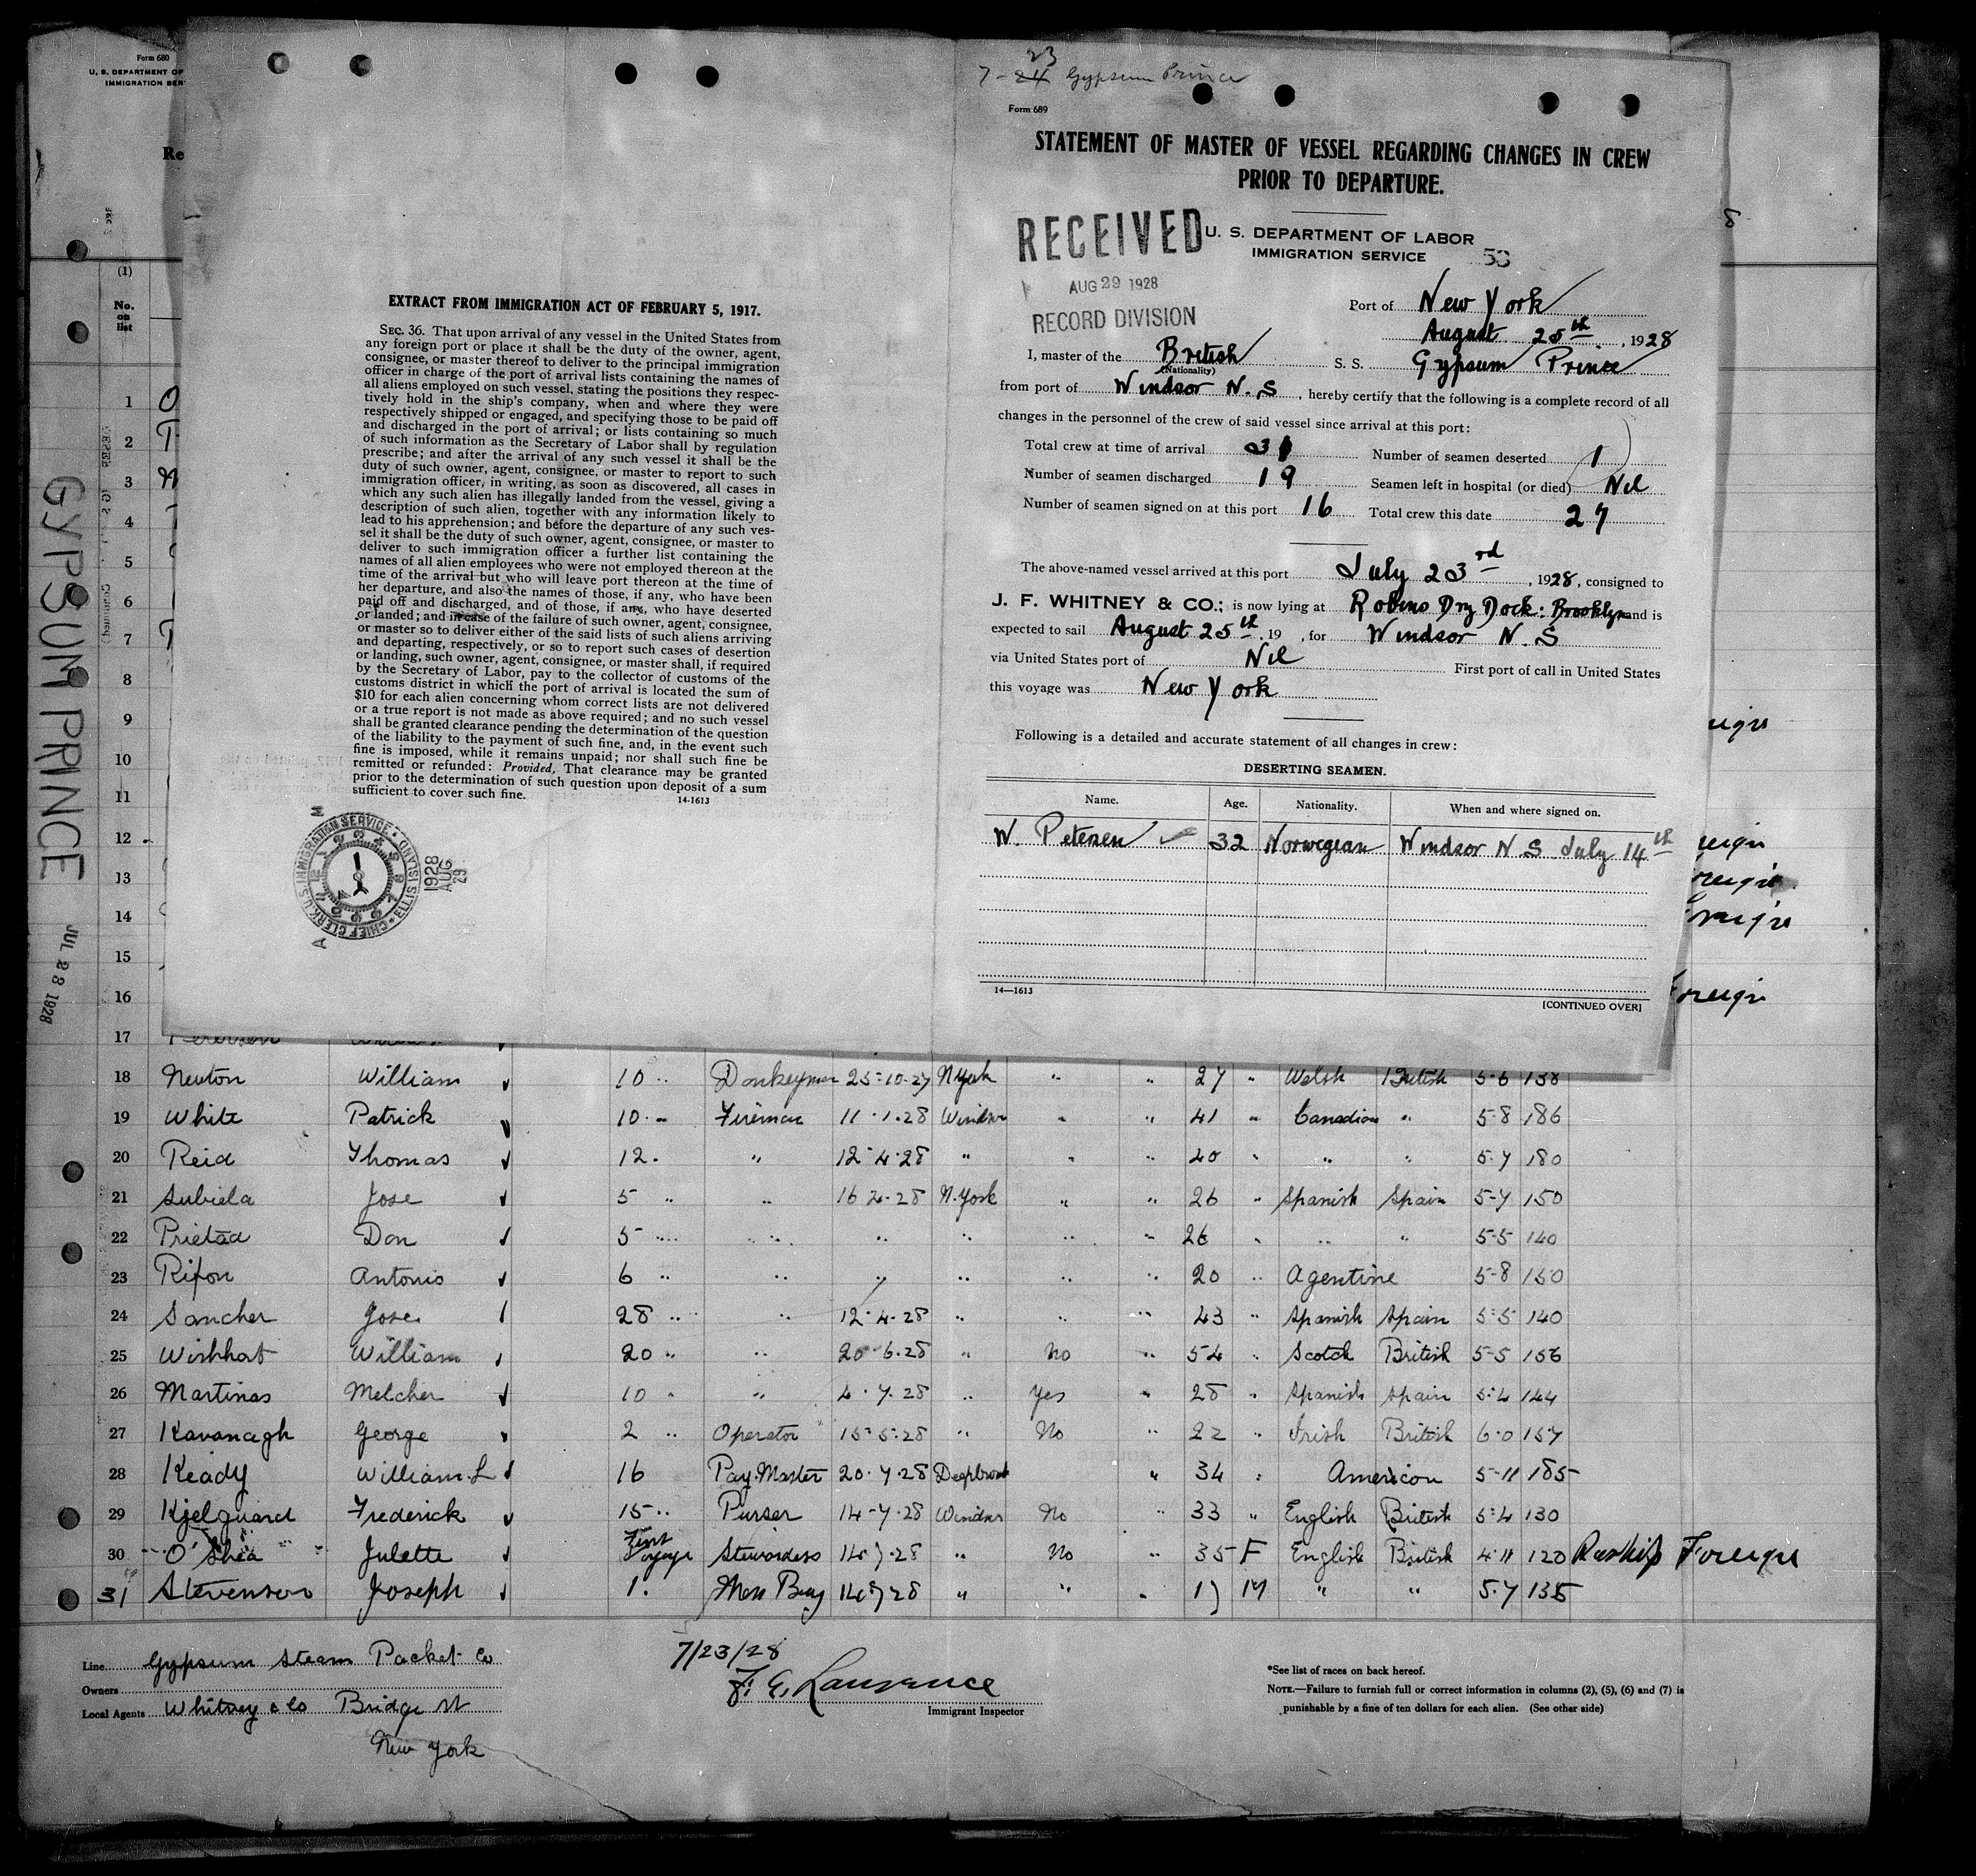 Form 680
U. S. DEPARTMENT OF
IMMIGRATION SER
Re
(1)
No.
on
list
GYPSUM PRINCE
JUL 28 1928
EXTRACT FROM IMMIGRATION ACT OF FEBRUARY 5, 1917.
SEC. 36. That upon arrival of any vessel in the United States from
any foreign port or place it shall be the duty of the owner, agent,
consignee, or master thereof to deliver to the principal immigration
officer in charge of the port of arrival lists containing the names of
all aliens employed on such vessel, stating the positions they respec-
tively hold in the ship's company, when and where they were
respectively shipped or engaged, and specifying those to be paid off
and discharged in the port of arrival; or lists containing so much
of such information as the Secretary of Labor shall by regulation
prescribe; and after the arrival of any such vessel it shall be the
duty of such owner, agent, consignee, or master to report to such
immigration officer, in writing, as soon as discovered, all cases in
which any such alien has illegally landed from the vessel, giving a
description of such alien, together with any information likely to
lead to his apprehension; and before the departure of any such ves-
sel it shall be the duty of such owner, agent, consignee, or master to
deliver to such immigration officer a further list containing the
names of all alien employees who were not employed thereon at the
time of the arrival but who will leave port thereon at the time of
her departure, and also the names of those, if any, who have been
paid off and discharged, and of those, if any, who have deserted
or landed; and in case of the failure of such owner, agent, consignee,
or master so to deliver either of the said lists of such aliens arriving
and departing, respectively, or so to report such cases of desertion
or landing, such owner, agent, consignee, or master shall, if required
by the Secretary of Labor, pay to the collector of customs of the
customs district in which the port of arrival is located the sum of
$10 for each alien concerning whom correct lists are not delivered
or a true report is not made as above required; and no such vessel
shall be granted clearance pending the determination of the question
of the liability to the payment of such fine, and, in the event such
fine is imposed, while it remains unpaid; nor shall such fine be
remitted or refunded: Provided, That clearance may be granted
prior to the determination of such question upon deposit of a sum
sufficient to cover such fine.
14-1613
U.S. IMMIGRATION SERVICE · ELLIS ISLAND · CHIEF CLERK
1928
AUG
29
23
7-24 Gypsum Prince
Form 689
STATEMENT OF MASTER OF VESSEL REGARDING CHANGES IN CREW
PRIOR TO DEPARTURE.
RECEIVED
AUG 29 1928
RECORD DIVISION
U. S. DEPARTMENT OF LABOR
IMMIGRATION SERVICE
53
Port of New York
August 25th, 1928
I, master of the British S. S. Gypsum Prince
(Nationality)
from port of Windsor N. S, hereby certify that the following is a complete record of all
changes in the personnel of the crew of said vessel since arrival at this port:
Total crew at time of arrival 31 Number of seamen deserted 1
Number of seamen discharged 19 Seamen left in hospital (or died) Nil
Number of seamen signed on at this port 16 Total crew this date 27
The above-named vessel arrived at this port July 23rd, 1928, consigned to
J. F. WHITNEY & CO.; is now lying at Robins Dry Dock: Brooklyn and is
expected to sail August 25th, 19 , for Windsor N. S
via United States port of Nil First port of call in United States
this voyage was New York
Following is a detailed and accurate statement of all changes in crew:
DESERTING SEAMEN.
Name. Age. Nationality. When and where signed on.
W. Petersen 32 Norwegian Windsor N. S July 14th
14—1613
[CONTINUED OVER]
1
2
3
4
5
6
7
8
9
10
11
12
13
14
15
16
17
18 Newton William 10 " Donkeyman 25-10-27 N York " " 27 " Welsh British 5-6 138
19 White Patrick 10 " Fireman 11-1-28 Windsor " " 41 " Canadian " 5-8 186
20 Reid Thomas 12 " " 12-4-28 " " " 40 " " " 5-7 180
21 Subiela Jose 5 " " 16 4-28 N. York " " 26 " Spanish Spain 5-7 150
22 Prietad Don 5 " " " " " " 26 " " " 5-5 140
23 Rifon Antonio 6 " " " " " " 20 " Agentine 5-8 150
24 Sancher Jose 28 " " 12-4-28 " " " 43 " Spanish Spain 5-5 140
25 Wishhart William 20 " " 20-6-28 " No " 54 " Scotch British 5-5 156
26 Martinas Melcher 10 " " 4-7-28 " Yes " 28 " Spanish Spain 5-4 144
27 Kavanagh George 2 " Operator 15-5-28 " No " 22 " Irish British 6-0 157
28 Keady William. L 16 Pay. Master 20-7-28 Deepbrook " 34 " American 5-11 185
29 Kjelguard Frederick 15 " Purser 14-7-28 Windsor No " 33 " English British 5-4 130
30 O'Shea Juliette First Voyage Stewardess 14-7-28 " No " 35 F English British 4-11 120 Reship Foreign
31 Stevenson Joseph 1. Mess Boy 14-7-28 " " " 17 M " " 5-7 135
Line Gypsum Steam Packet Co
Owners
Local Agents Whitney & Co Bridge St
New York
7/23/28
F. E. Lawrence
Immigrant Inspector
*See list of races on back hereof.
NOTE.—Failure to furnish full or correct information in columns (2), (5), (6) and (7) is
punishable by a fine of ten dollars for each alien. (See other side)